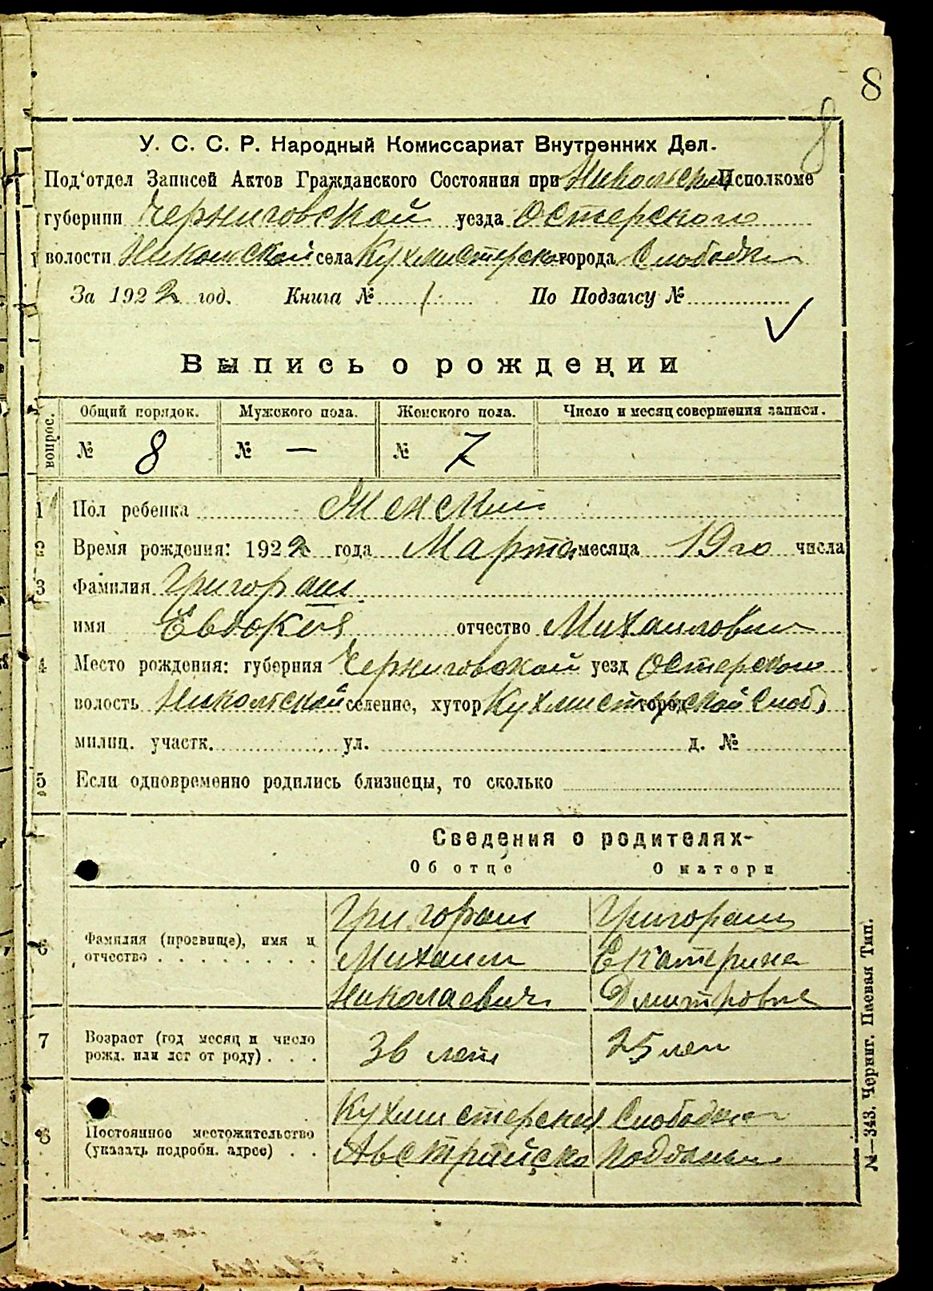 8
8
У. С. С. Р. Народный Комиссариат Внутренних Дел.
Под'отдел Записей Актов Гражданского Состояния при Никольском Исполкоме
губернии Черниговской уезда Остерского
волости Никольской села Кухмистерской города Слободки
За 1922 год. Книга № 1 По Подзагсу №
Выпись о рождении
вопрос. Общий порядок. Мужского пола. Женского пола. Число и месяц совершения записи.
№ 8 № — № 7
1 Пол ребенка Женский
2 Время рождения: 1922 года Марта месяца 19го числа
3 Фамилия Григораш
имя Евдокия отчество Михайловна
4 Место рождения: губерния Черниговской уезд Остерского
волость Никольской селение, хутор Кухмистерской Слоб.
милиц. участк. ул. д. №
5 Если одновременно родились близнецы, то сколько
Сведения о родителях-
Об отце О матери
6 Фамилия (прозвище), имя и отчество
Григораш Григораш
Михаил Екатерина
Николаевич Дмитровна
7 Возраст (год месяц и число рожд. или лет от роду) 36 лет 25 лет
8 Постоянное местожительство (указать подробн. адрес)
Кухмистерская Слободка
Австрийско подданы
№—343. Черниг. Паевая Тип.